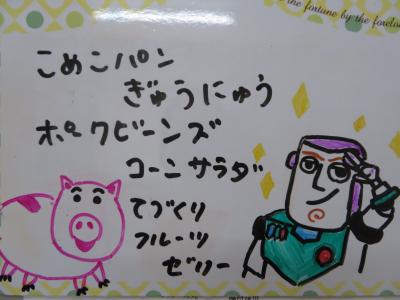 the fortune by the foreloc
こめこパン
ぎゅうにゅう
ポークビーンズ
コーンサラダ
てづくり
フルーツ
ゼリー